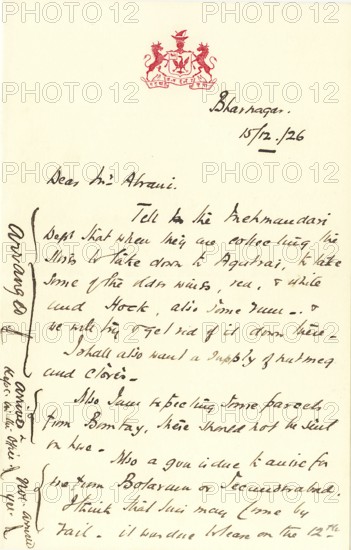 Bhavnagar.
15/12/26
Dear Mr
Tell the Mehmandari
Dept that when they are collecting the
to take down to to take
some of the older wines, red, & white
and Hock, also some rum - &
we will try & get rid of it down there -
I shall also want a supply of nutmeg
and cloves -
Also I am expecting some parcels
from Bombay, these should not be sent
on here -
Also a gun is due to arrive for
me from Bolarum or Secunderabad.
I think that this may come by
rail - it was due to leave on the 12th
arranged
arrived
Kept in the office
Not arrived
yet.